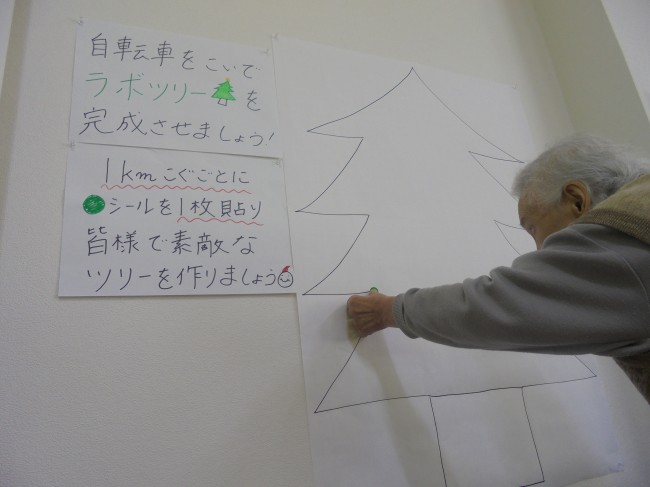 自転車をこいで
ラボツリーを
完成させましょう!
1kmこぐごとに
シールを1枚貼り
皆様で素敵な
ツリーを作りましょう